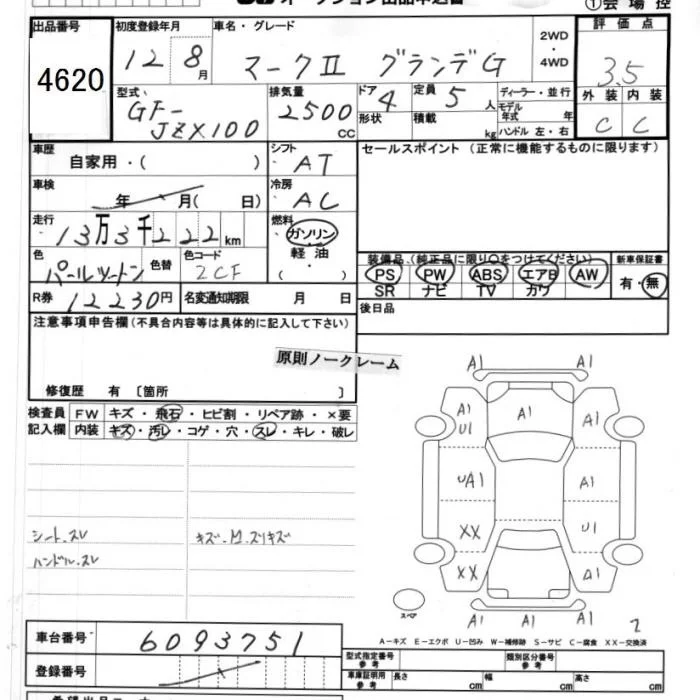 オークション出品申込書
①会場控
出品番号
4620
初度登録年月
12 8月
車名・グレード
マークⅡ グランデG
2WD
・
4WD
評価点
3.5
型式
GF-
JZX100
排気量
2500
CC
ドア 4
形状
定員 5 人
積載 kg
ディーラー・並行
モデル年式 年
ハンドル 左・右
外装 内装
C C
車歴
自家用・( )
シフト
AT
セールスポイント(正常に機能するものに限ります)
車検
年 月( 日)
冷房
AC
走行
13万3千222km
燃料
ガソリン
軽油
・
( )
色
パールツートン
色替
色コード
2CF
装備品(純正品に限り〇をつけてください)
PS PW ABS エアB AW
SR ナビ TV カワ
新車保証書
有・無
R券 12230円
名変通知期限 月 日
後日品
注意事項申告欄(不具合内容等は具体的に記入して下さい)
原則ノークレーム
修復歴 有 〔箇所 〕
検査員
記入欄
FW キズ・飛石・ヒビ割・リペア跡・×要
内装 キズ・汚レ・コゲ・穴・スレ・キレ・破レ
シート.スレ
ハンドル.スレ
キズ.M.スリキズ
A1 A1
A1
U1
A1
A1
UA1 A1
XX U1
XX A1
A1 A1
スペア
2
A-キズ E-エクボ U-凹み W-補修跡 S-サビ C-腐食 XX-交換済
車台番号
6093751
登録番号
型式指定番号
参考
類別区分番号
参考
車庫証明用
参考
長さ cm 幅 cm 高さ cm